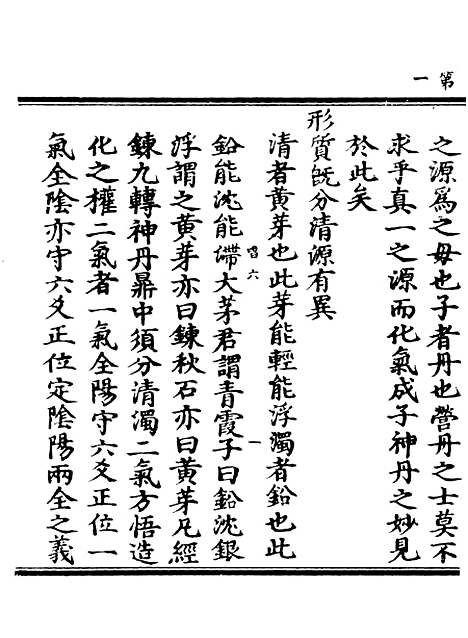 第一
之源爲之母也子者丹也營丹之士莫不
求乎真一之源而化氣成子神丹之妙見
於此矣
形質旣分清源有異
清者黄芽也此芽能輕能浮濁者鉛也此
唱六
一
鉛能沈能滯大茅君謂青霞子曰鉛沈銀
浮謂之黄芽亦曰鍊秋石亦曰黄芽凡經
鍊九轉神丹鼎中須分清濁二氣方悟造
化之權二氣者一氣全陽守六爻正位一
氣全陰亦守六爻正位定陰陽兩全之義